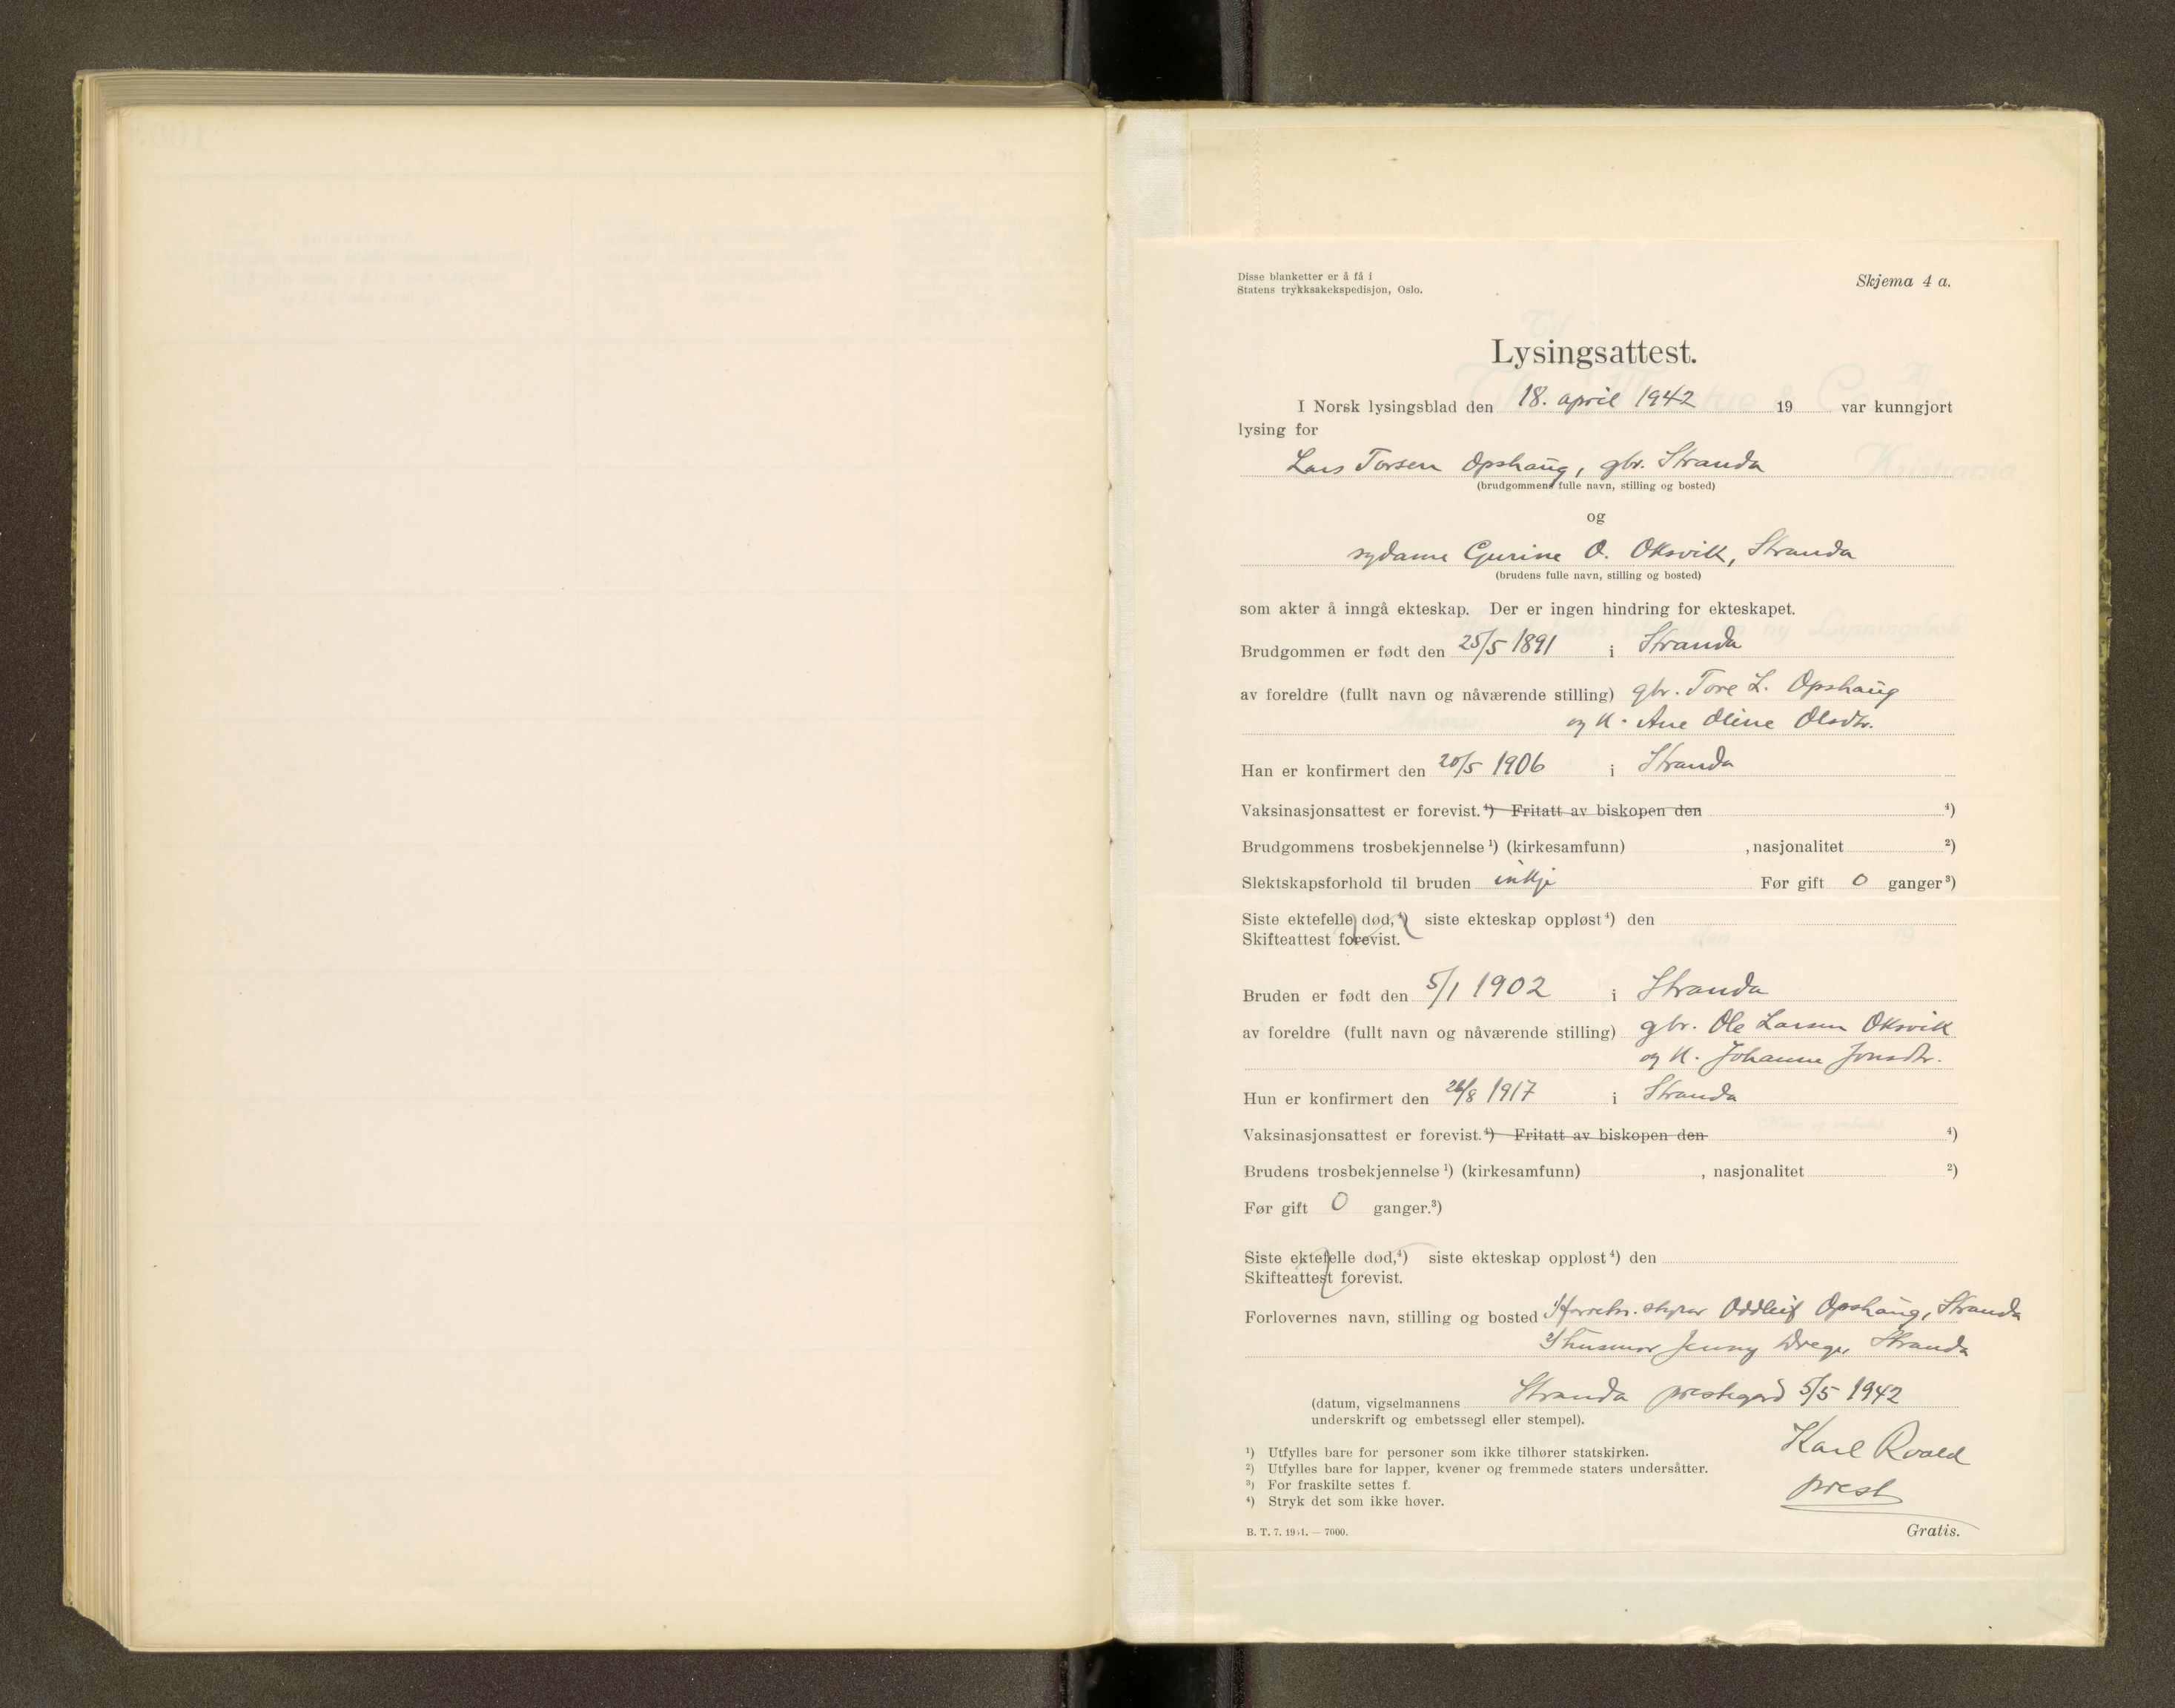 Disse blanketter er å få i
Statens trykksakekspedisjon, Oslo.
Skjema 4 a.
Lysingsattest.
I Norsk lysingsblad den 18. april 1942 19 var kunngjort
lysing for
Lars Torsen Opshaug, gbr. Stranda
(brudgommens fulle navn, stilling og bosted)
og
sydame Gurine O. Oksvik, Stranda
(brudens fulle navn, stilling og bosted)
som akter å inngå ekteskap. Der er ingen hindring for ekteskapet.
Brudgommen er født den 25/5 1891 i Stranda
av foreldre (fullt navn og nåværende stilling) gbr. Tore L. Opshaug
og k. Ane Oline Olsdtr.
Han er konfirmert den 20/5 1906 i Stranda
Vaksinasjonsattest er forevist.⁴) Fritatt av biskopen den ⁴)
Brudgommens trosbekjennelse ¹) (kirkesamfunn) , nasjonalitet ²)
Slektskapsforhold til bruden inkje Før gift 0 ganger ³)
Siste ektefelle død,⁴) siste ekteskap oppløst ⁴) den
Skifteattest forevist.
Bruden er født den 5/1 1902 i Stranda
av foreldre (fullt navn og nåværende stilling) gbr. Ole Larsen Oksvik
og k. Johanne Jonsdtr.
Hun er konfirmert den 26/8 1917 i Stranda
Vaksinasjonsattest er forevist.⁴) Fritatt av biskopen den ⁴)
Brudens trosbekjennelse ¹) (kirkesamfunn) , nasjonalitet ²)
Før gift 0 ganger.³)
Siste ektefelle død,⁴) siste ekteskap oppløst ⁴) den
Skifteattest forevist.
Forlovernes navn, stilling og bosted 1) forretn. styrar Oddleif Opshaug, Stranda
2) husmor Jenny Drege, Stranda
(datum, vigselmannens Stranda prestegard 5/5 1942
underskrift og embetssegl eller stempel).
Karl Roald
prest
¹) Utfylles bare for personer som ikke tilhører statskirken.
²) Utfylles bare for lapper, kvener og fremmede staters undersåtter.
³) For fraskilte settes f.
⁴) Stryk det som ikke høver.
B. T. 7. 1941. — 7000.
Gratis.